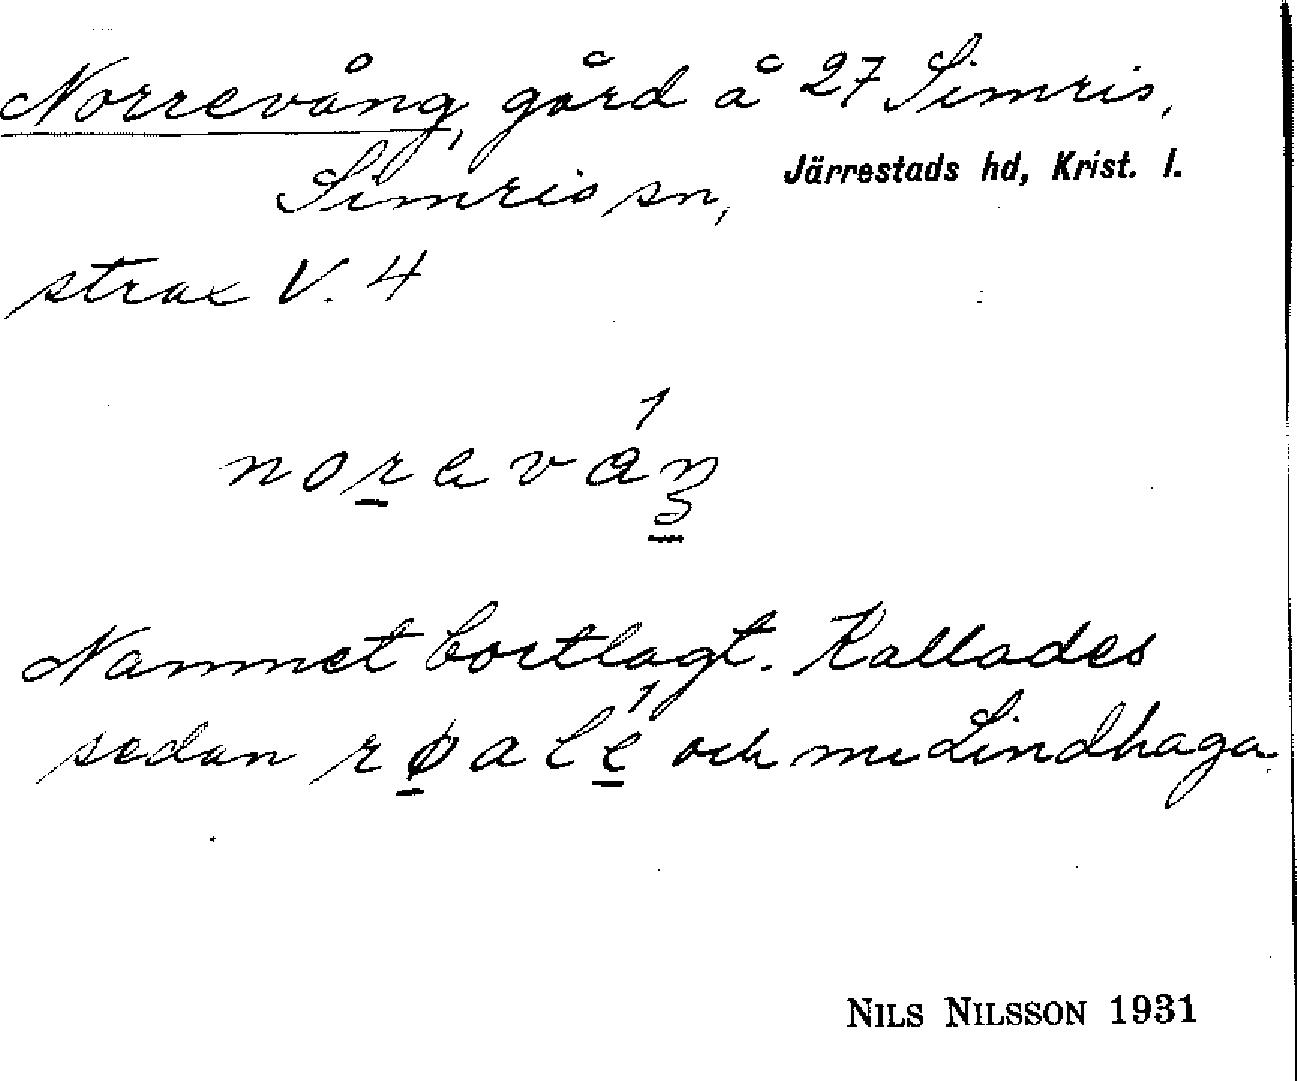 Norrevång, gård å 27 Simris,
Simris sn, Järrestads hd, Krist. l.
strax V. 4
noreváŋ
Namnet bortlagt. Kallades
sedan røalé och nu Lindhaga
NILS NILSSON 1931